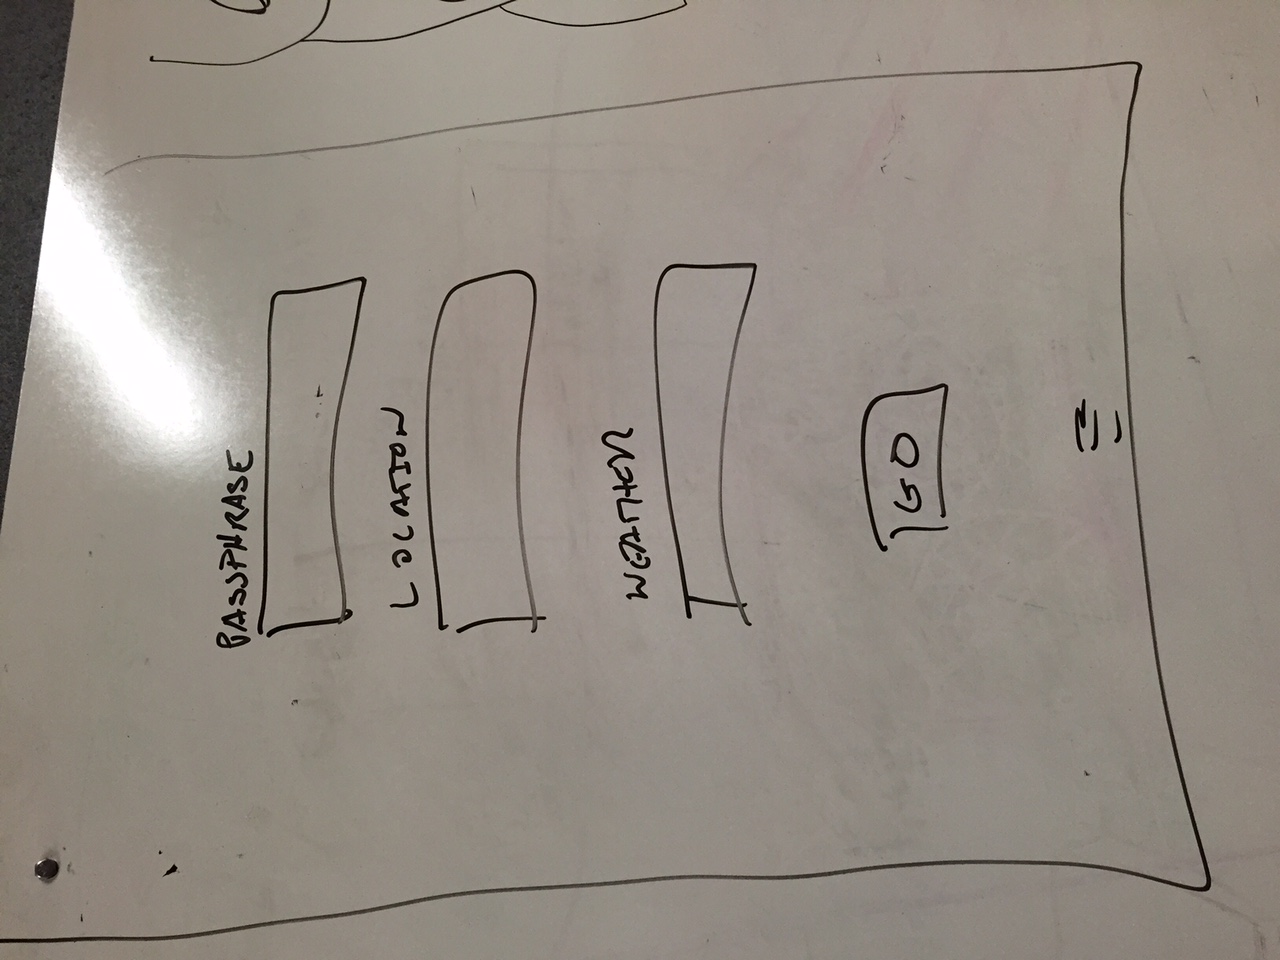 PASSPHRASE
LOCATION
WEATHER
GO